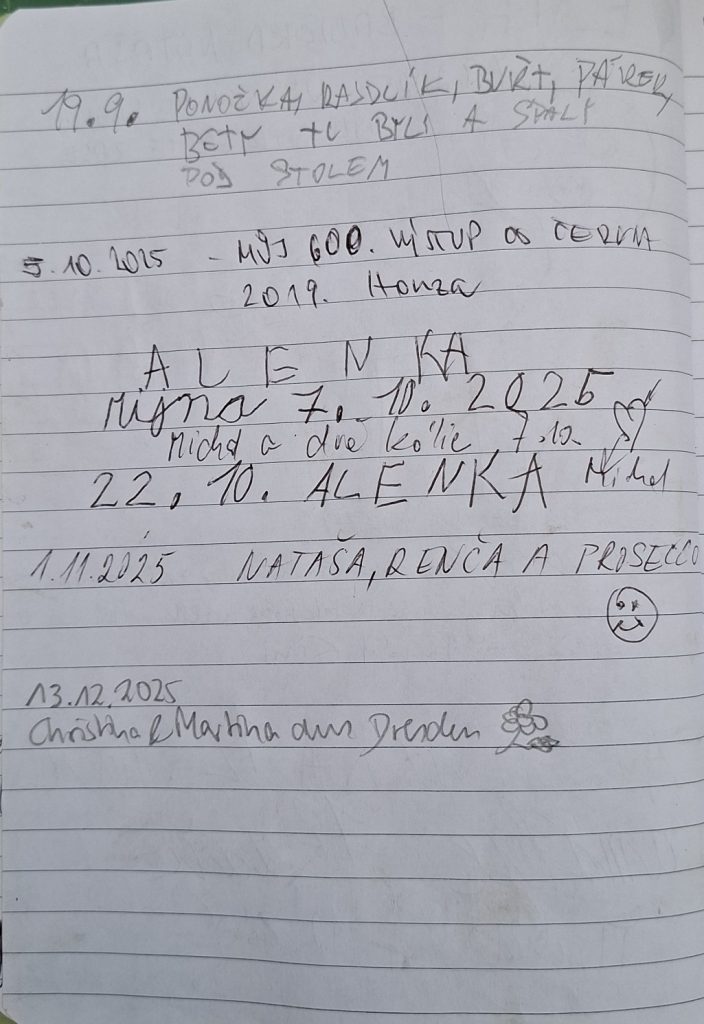 19.9. PONOŽKA, RASDLÍK, BUŘT, PÁREK,
BETY TU BYLI A SPALI
POD STOLEM
5.10.2025 - MŮJ 600. VÝSTUP OD ČERVNA
2019. Honza
ALENKA
7.10.2025
Michal a dvě kólie 7.10.
22.10. ALENKA Michal
1.11.2025 NATAŠA, RENČA A PROSECCO
13.12.2025
Christina & Martina aus Dresden